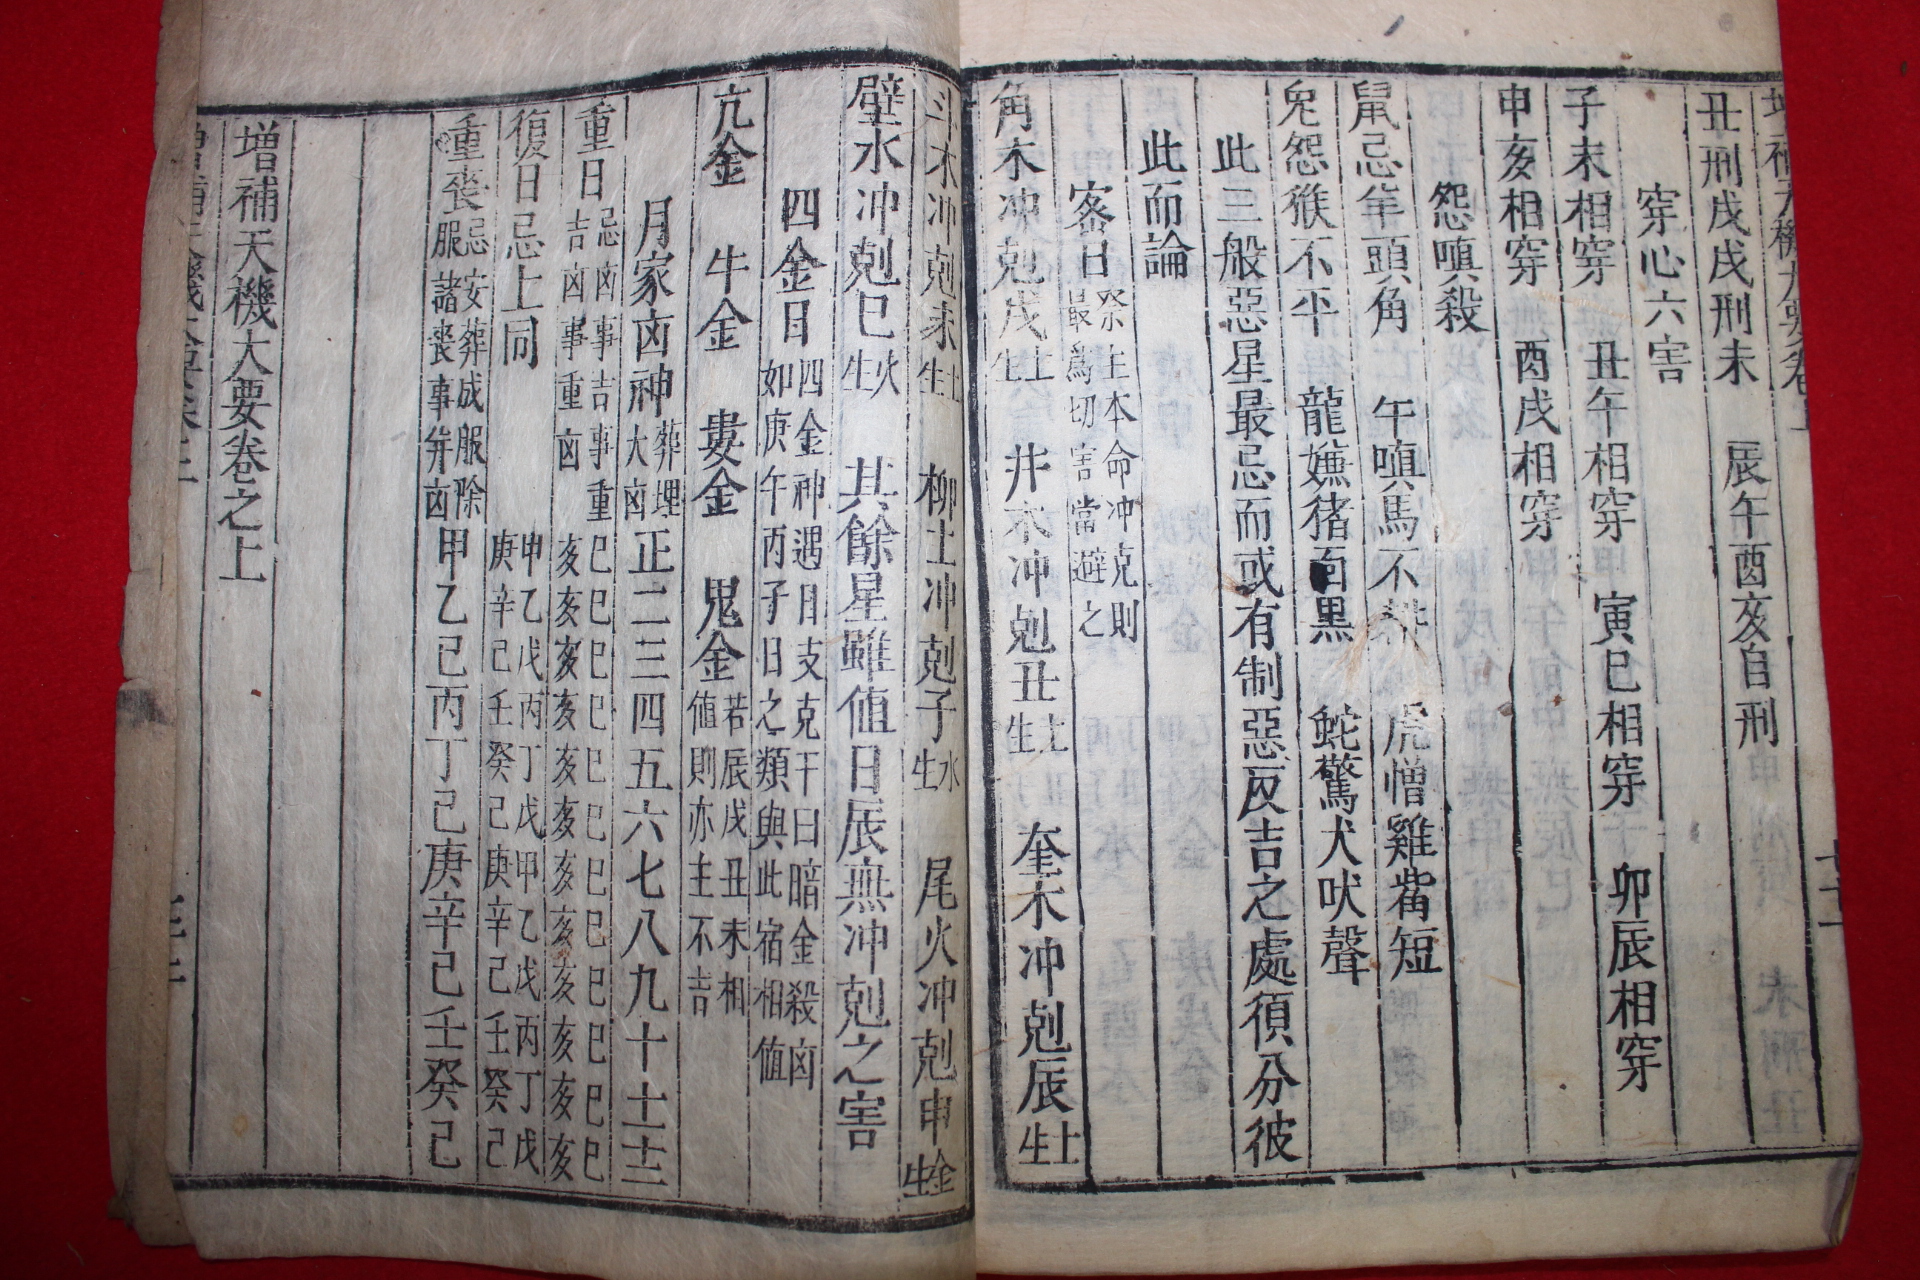 丑刑戌戌刑未 辰午酉亥自刑
穿心六害
子未相穿 丑午相穿 寅巳相穿 卯辰相穿
申亥相穿 酉戌相穿
怨嗔殺
鼠忌羊頭角 午嗔馬不耕 虎憎雞觜短
兔怨猴不平 龍嫌猪面黑 蛇驚犬吠聲
此三般惡星最忌而或有制惡反吉之處須分彼
此而論
密日 祭主本命冲克則
最為切害當避之
角木冲剋戌 土生 井木冲剋丑 土生 奎木冲剋辰 土生
斗木冲剋未 土生 柳土冲剋子 水生 尾火冲剋申 金生
壁水冲剋巳 火生 其餘星雖値日辰無冲剋之害
四金日 四金神遇日支克干曰暗金殺凶
如庚午丙子日之類與此宿相値
亢金 牛金 婁金 鬼金 若辰戌丑未相
値則亦主不吉
月家凶神 葬埋
大凶 正二三四五六七八九十十一十二
重日 忌凶事吉事重
吉凶事重凶 巳巳巳巳巳巳巳巳巳巳巳巳
亥亥亥亥亥亥亥亥亥亥亥亥
復日忌上同 甲乙戊丙丁戊甲乙戊丙丁戊
庚辛己壬癸己庚辛己壬癸己
重喪 忌安葬成服除
服諸喪事幷凶 甲乙己丙丁己庚辛己壬癸己
增補天機大要卷之上